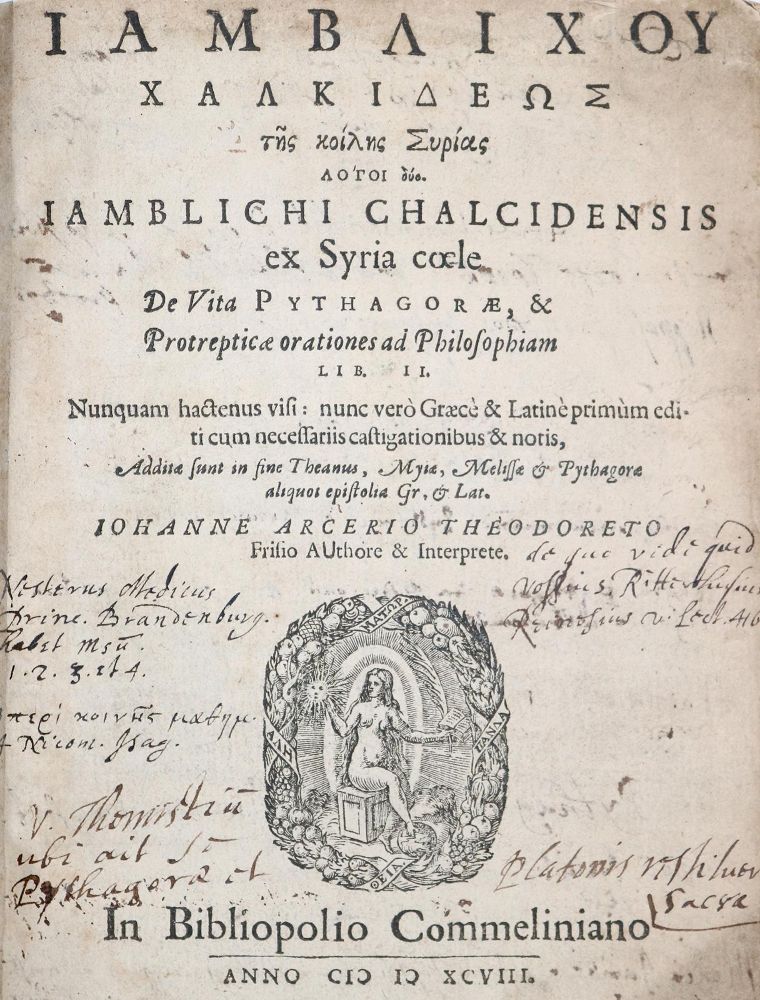 ΙΑΜΒΛΙΧΟΥ
ΧΑΛΚΙΔΕΩΣ
τῆς κοίλης Συρίας
ΛΟΓΟΙ δύο.
IAMBLICHI CHALCIDENSIS
ex Syria cœle
De Vita PYTHAGORÆ, &
Protrepticæ orationes ad Philoſophiam
LIB. II.
Nunquam hactenus viſi: nunc verò Græcè & Latinè primùm edi-
ti cum neceſſariis caſtigationibus & notis,
Additæ ſunt in fine Theanus, Myiæ, Meliſſæ & Pythagoræ
aliquot epiſtolia Gr. & Lat.
IOHANNE ARCERIO THEODORETO
Friſio AUthore & Interprete.
de quo vide quid
Voſſius, Ritterſhuſius
Reineſius v. Lect. 416
Medicus
Princ. Brandenburg.
habet msū.
1. 2. 3. et 4.
περὶ κοινῆς μαθημ.
Nicom. Isag.
ΜΑΤΩΡ
ΑΛΗ
ΘΕΙΑ
V. Themistiū
ubi ait se
Pythagoræ et
Platonis restituere
sacra
In Bibliopolio Commeliniano
ANNO CIƆ IƆ XCVIII.